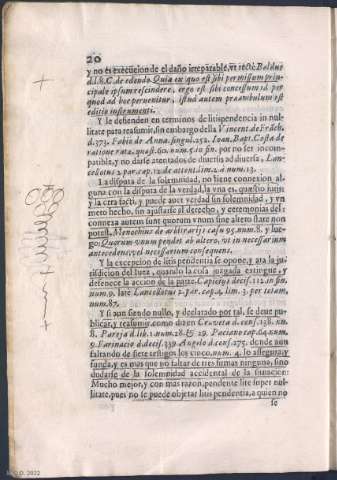 20
y no es execucion de el daño irreparable, ut teot. Baldus
d. l. 8. C. de edendo Quia ex quo est sibi permissum prin-
cipale ipsum rescindere, ergo est sibi concessum id per
quod ad hoc pervenitur, istud autem praeambulum est
editio instrumenti.
Y le defienden en terminos de litispendencia in nu-
litate para reasumir, sin embargo della Vincent de Franch.
d. 373. Fabio de Anna singul. 252. Ioan. Bapt. Costa de
ratione rata. quaest. 60. num. 6. in fin. por no ser incom-
patible, y no darse atentados de diversis ad diversa, Lan-
celotus 2. par. cap. 12. de attent. lim. 2. à num. 13.
La disputa de la solemnidad, no tiene connexion al-
guna con la disputa de la verdad, la vna es, quaestio iuris
y la otra facti, y puede auer verdad sin solemnidad, y vn
mero hecho, sin ajustarse al derecho, y ceremonias del:
connexa autem sunt quorum vnum sine altero stare non
potest, Menochius de arbitrarijs casu 95. num. 8. y lue-
go: Quorum vnum pendet ab altero, vti in necessarium
antecedens, vel necessarium consequens.
Y la excepcion de litis pendentia se opone, y ata la ju-
risdicion del Iuez, quando la cosa juzgada extingue, y
defenece la accion de la parte. Capicius decis. 112. in fin.
num. 9. late Lancellotus 2. par. cap. 4. lim. 3. per totam,
num. 87.
Y si aun siendo nullo, y declarado por tal, se deue pu-
blicar, y reasumir, como dizen Craveta d. cons. 138. nn.
8. Pareja d. lib. 1. num. 28. & 29. Paciano cap. 64. num.
9. Farinacio d. decis. 339. Angelo d. cons. 275. donde aun
faltando de siete testigos los cinco, num. 4. lo assegura, y
funda, y es mas que no faltar de tres firmas ninguno, sino
dudarse de la solemnidad accidental de la situacion:
Mucho mejor, y con mas razon, pendente lite super nul-
litate, pues no se puede objetar litis pendentia, a quien no
se
2022